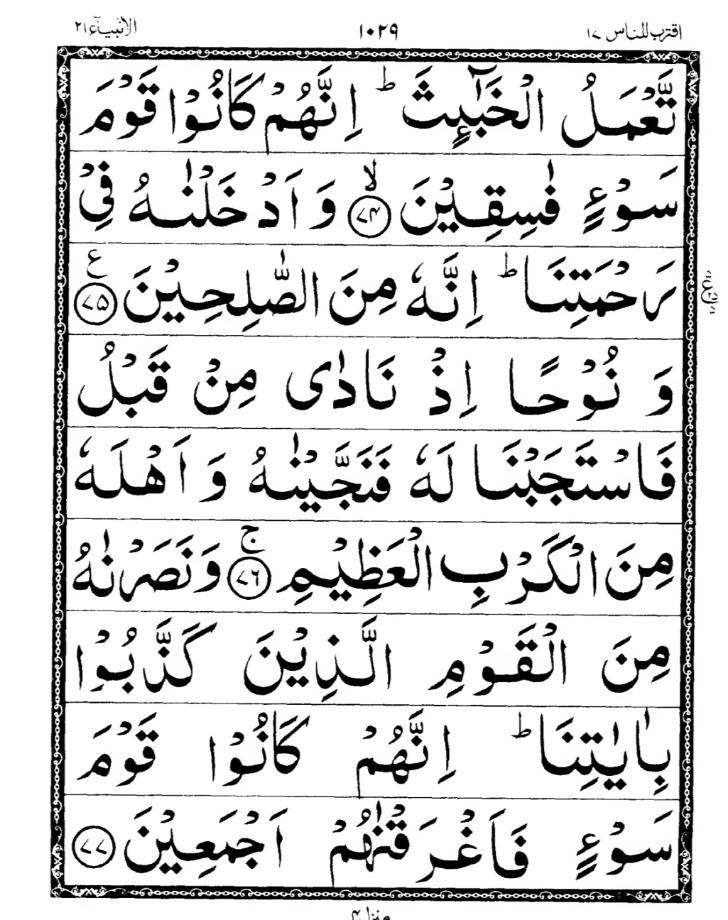 اقترب للناس ١٧ ١٠٢٩ الانبیآء ٢١
تَّعْمَلُ الْخَبٰٓئِثَ ؕ اِنَّهُمْ كَانُوْا قَوْمَ
سَوْءٍ فٰسِقِیْنَ ۙ﴿٧٤﴾ وَ اَدْخَلْنٰهُ فِیْ
رَحْمَتِنَا ؕ اِنَّهٗ مِنَ الصّٰلِحِیْنَ ﴿٧٥﴾ ع
وَ نُوْحًا اِذْ نَادٰی مِنْ قَبْلُ
فَاسْتَجَبْنَا لَهٗ فَنَجَّیْنٰهُ وَ اَهْلَهٗ
مِنَ الْكَرْبِ الْعَظِیْمِ ۚ﴿٧٦﴾ وَ نَصَرْنٰهُ
مِنَ الْقَوْمِ الَّذِیْنَ كَذَّبُوْا
بِاٰیٰتِنَا ؕ اِنَّهُمْ كَانُوْا قَوْمَ
سَوْءٍ فَاَغْرَقْنٰهُمْ اَجْمَعِیْنَ ﴿٧٧﴾
منزل ٤